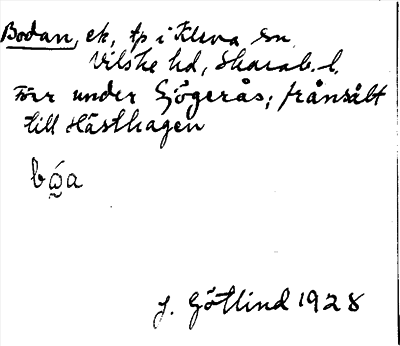 Bodan, ek, tp i Kleva sn
Vilske hd, Skarab. l.
Förr under Sjögerås; frånsålt
till Hästhagen
bǫ́a
J. Götlind 1928